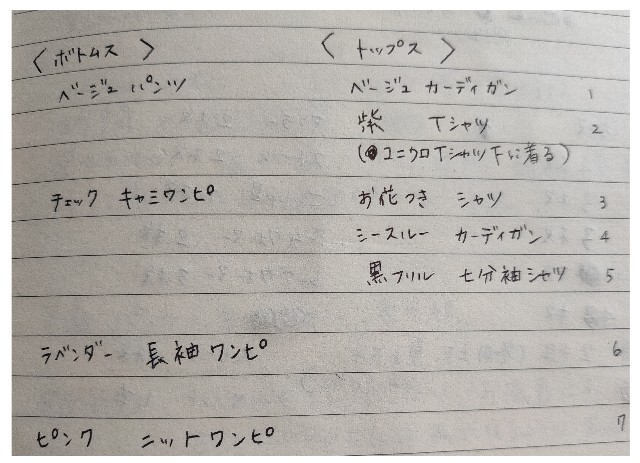 〈ボトムス〉 〈トップス〉
ベージュ パンツ ベージュ カーディガン 1
紫 Tシャツ 2
(ユニクロTシャツ下に着る)
チェック キャミワンピ お花つき シャツ 3
シースルー カーディガン 4
黒フリル 七分袖シャツ 5
ラベンダー 長袖ワンピ 6
ピンク ニットワンピ 7